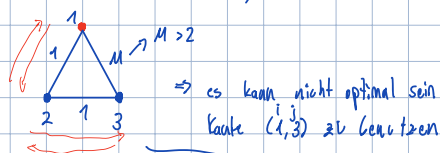 1
1 M M > 2
⇒ es kann nicht optimal sein
i j
2 1 3 Kante (1,3) zu benutzen